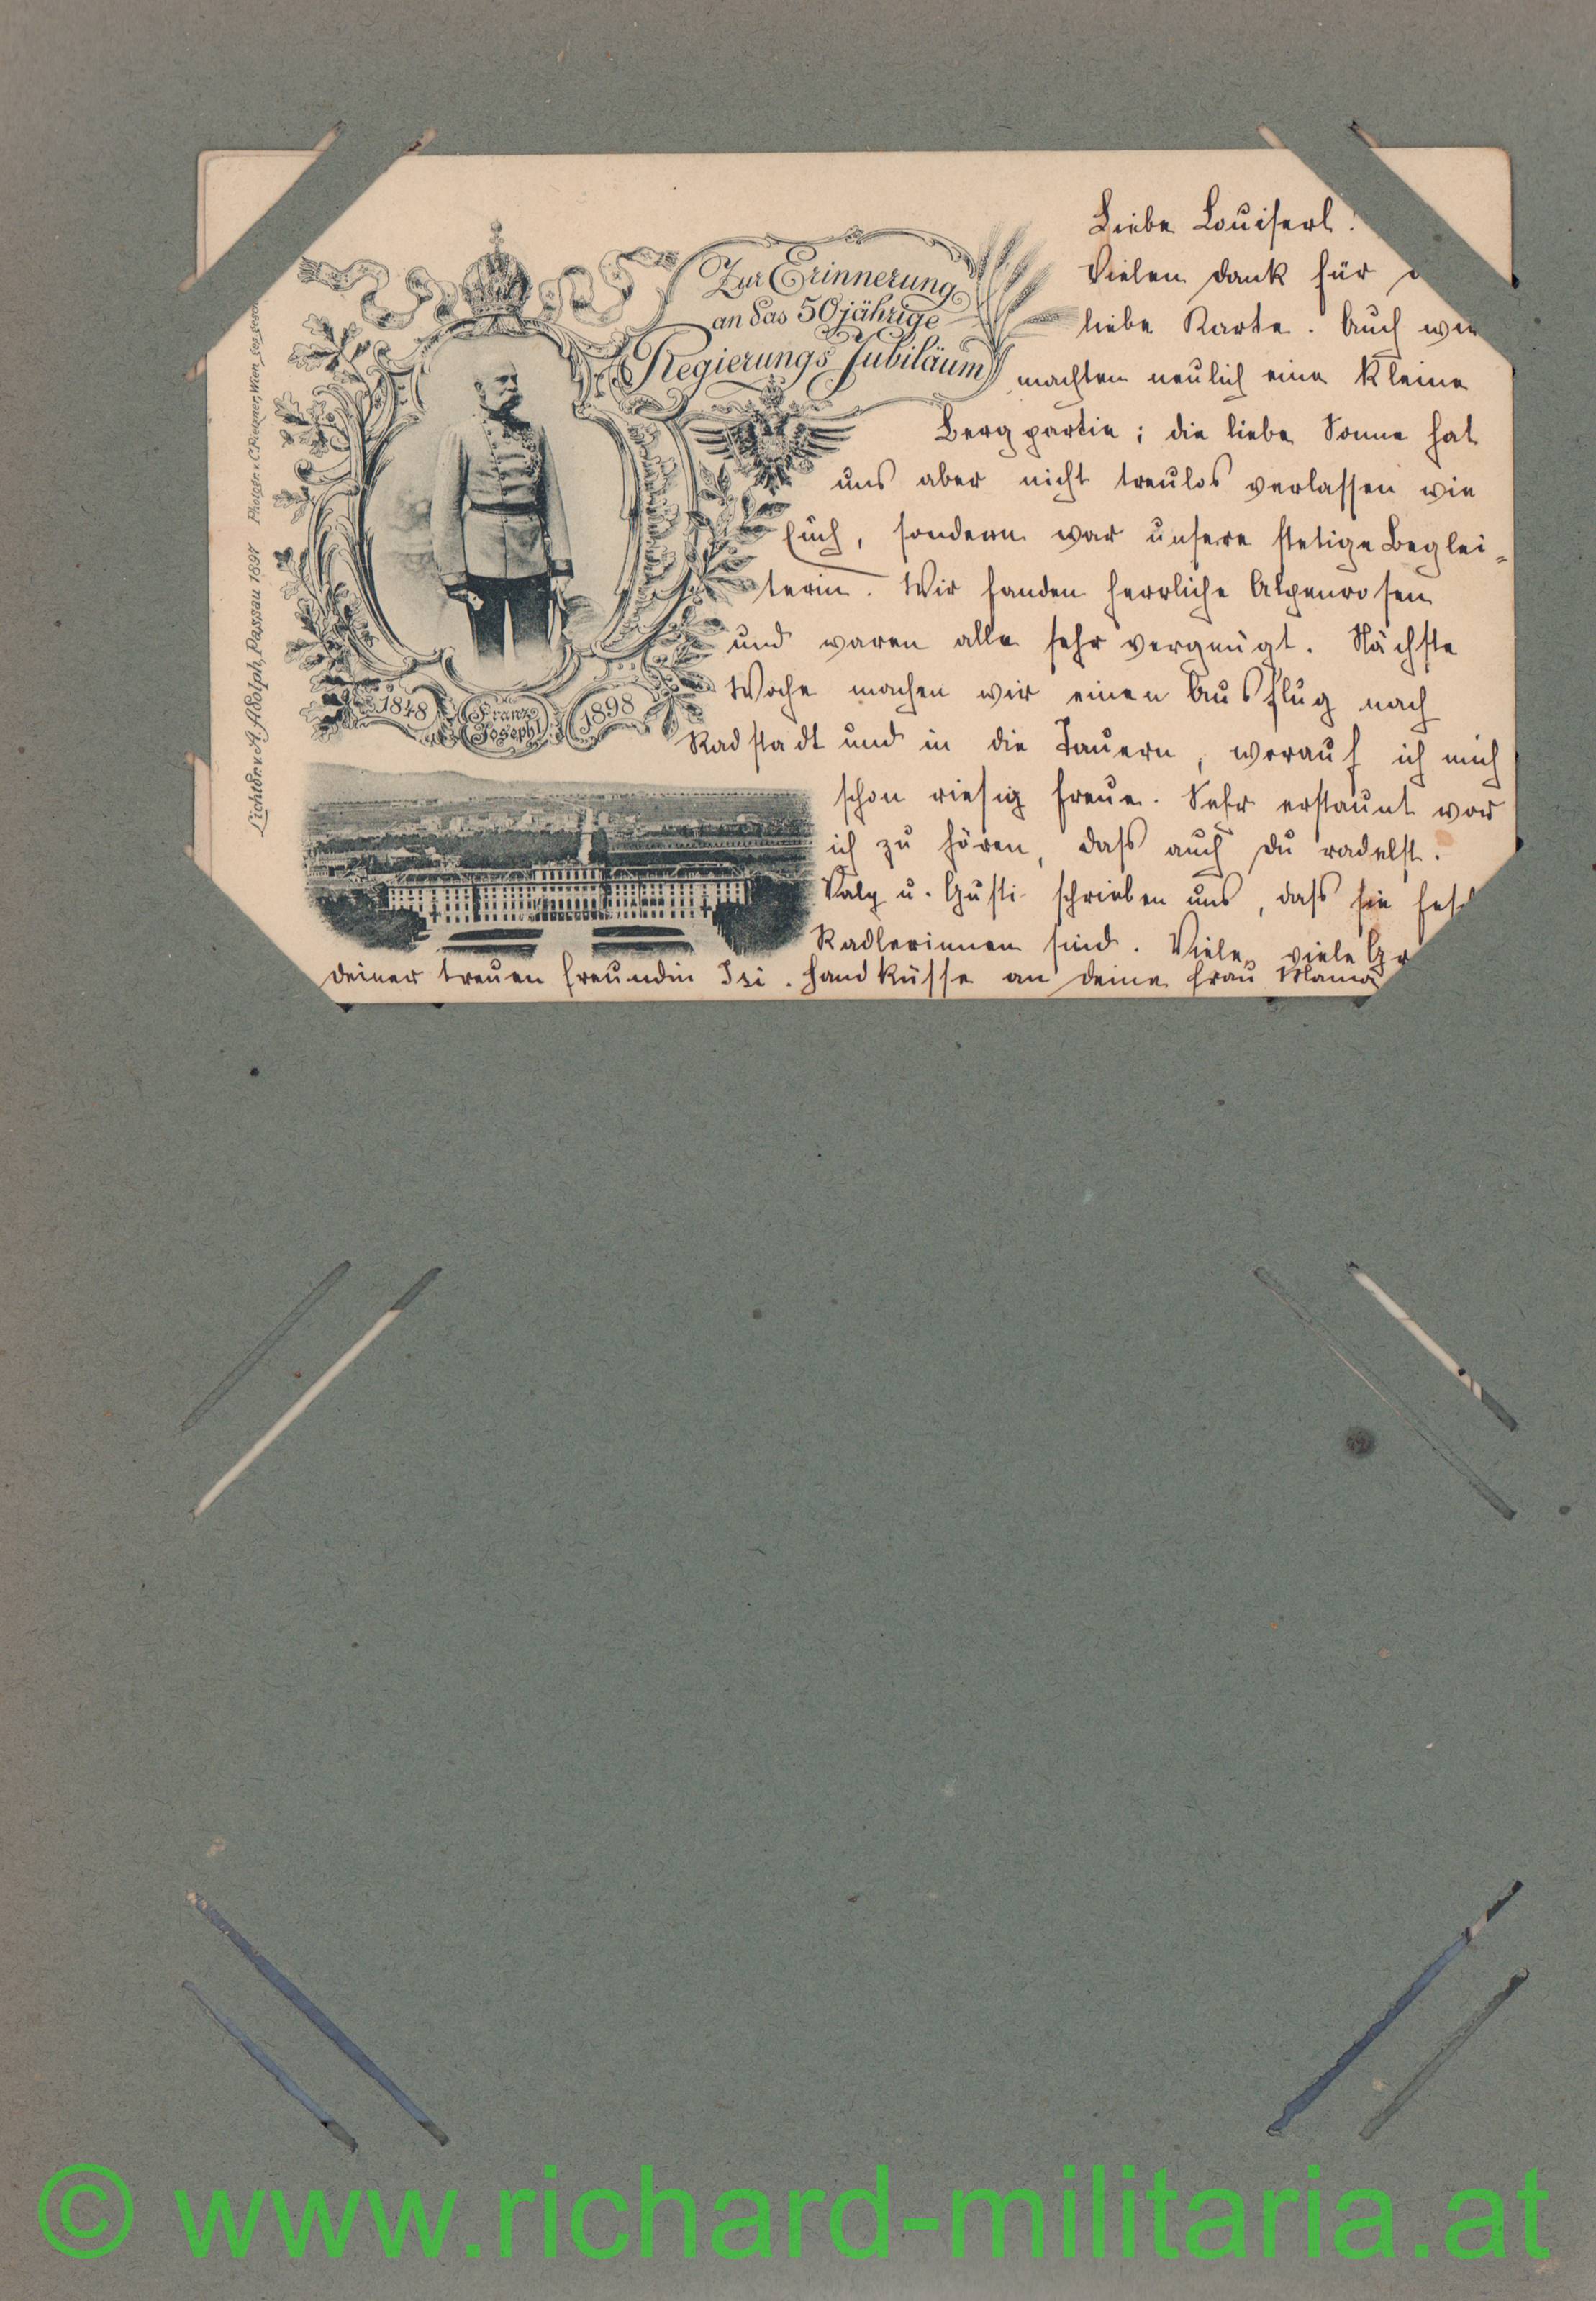 Zur Erinnerung
an das 50jährige
Regierungs Jubiläum
1848
Franz
Joseph I
1898
Lichtdr. v. A. Adolph, Passau 1897 Photogr. v. C. Pietzner, Wien
Liebe Louiserl!
Vielen Dank für
liebe Karte. Auch wir
machten neulich eine kleine
Bergpartie; die liebe Sonne hat
uns aber nicht treulos verlassen wie
Euch, sondern war unsere stetige Beglei=
terin. Wir fanden herrliche Alpenrosen
und waren alle sehr vergnügt. Nächste
Woche machen wir einen Ausflug nach
Radstadt und in die Tauern, worauf ich mich
schon riesig freue. Sehr erstaunt war
ich zu hören, dass auch Du radelst.
Valy u. Gusti schrieben uns, dass sie
Radlerinnen sind. Viele, viele
Deiner treuen Freundin Isi. Handküsse an Deine Frau Mama
© www.richard-militaria.at